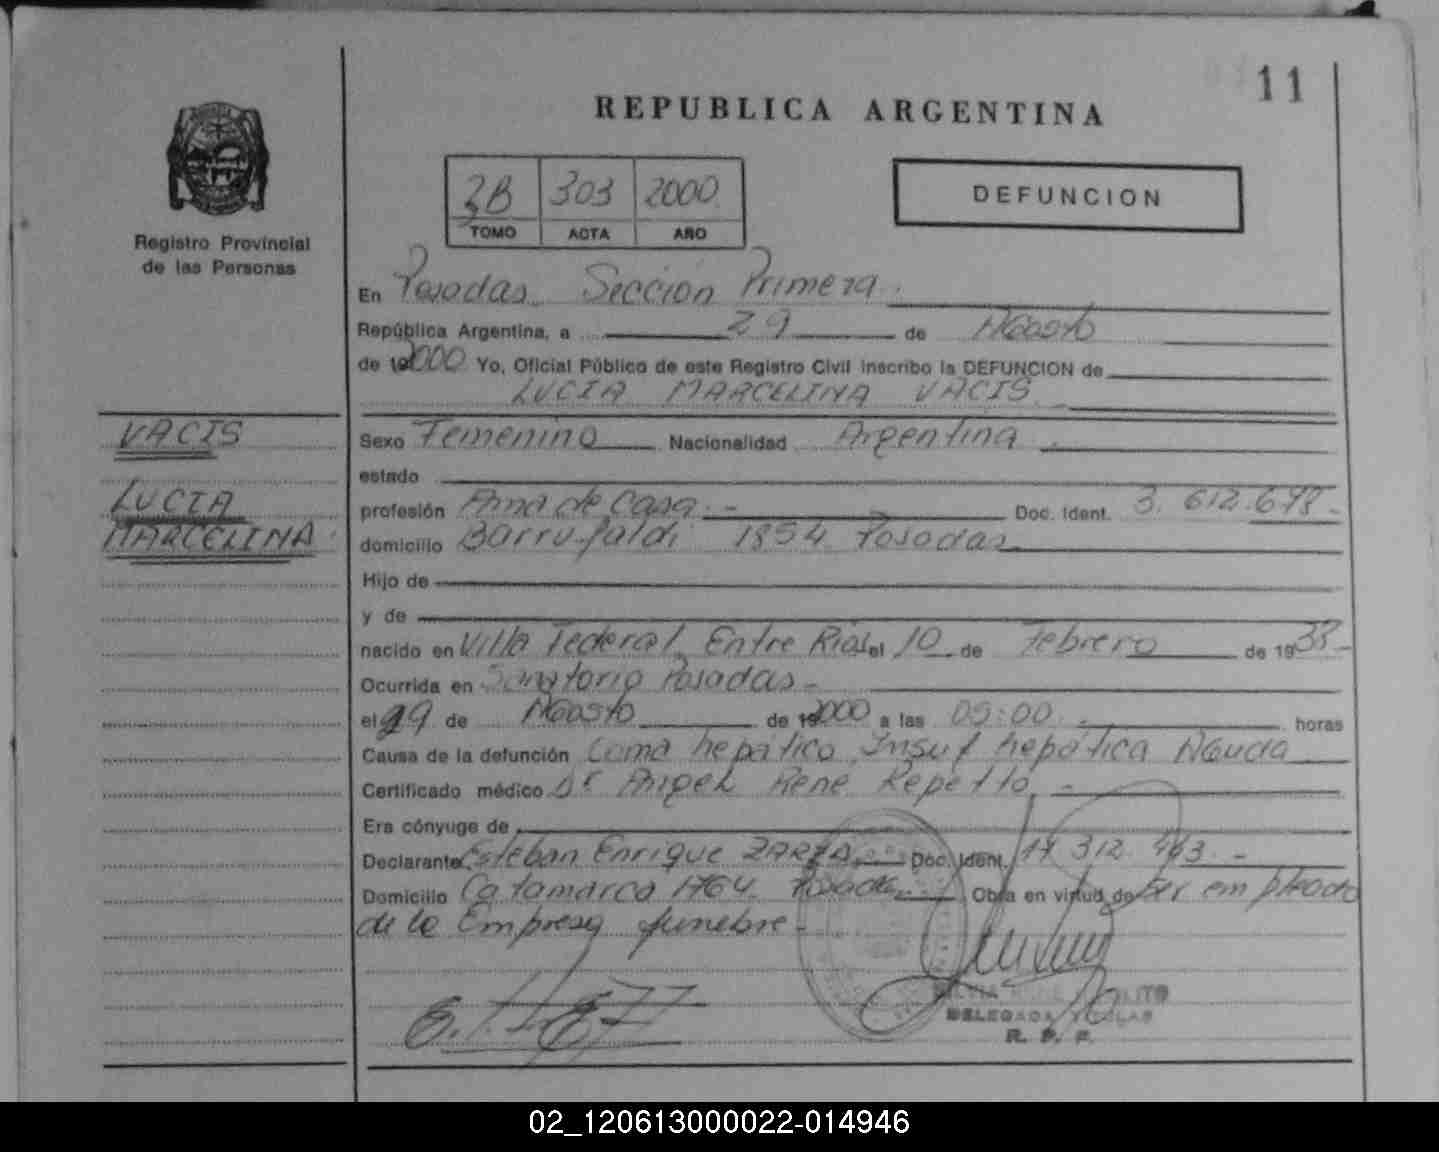 11
REPUBLICA ARGENTINA
DEFUNCION
3B 303 2000
TOMO ACTA AÑO
Registro Provincial
de las Personas
En Posadas Sección Primera
República Argentina, a 29 de Agosto
de 2000 Yo, Oficial Público de este Registro Civil inscribo la DEFUNCION de
LUCIA MARCELINA VACIS
VACIS
LUCIA
MARCELINA
Sexo Femenino Nacionalidad Argentina
estado
profesión Ama de Casa.- Doc. Ident. 3.612.678-
domicilio Barrufaldi 1854 Posadas
Hijo de
y de
nacido en Villa Federal, Entre Rios el 10 de Febrero de 1933-
Ocurrida en Sanatorio Posadas-
el 29 de Agosto de 2000 a las 05:00 horas
Causa de la defunción Coma hepático, Insuf hepática Aguda
Certificado médico Dr Angel Rene Repetto -
Era cónyuge de
Declarante Esteban Enrique ZARZA Doc. Ident. 17 312 463.-
Domicilio Catamarca 1764 Posadas Obra en virtud de Ser empleado
de la Empresa funebre-
DELEGADA
R. P. P.
02_120613000022-014946